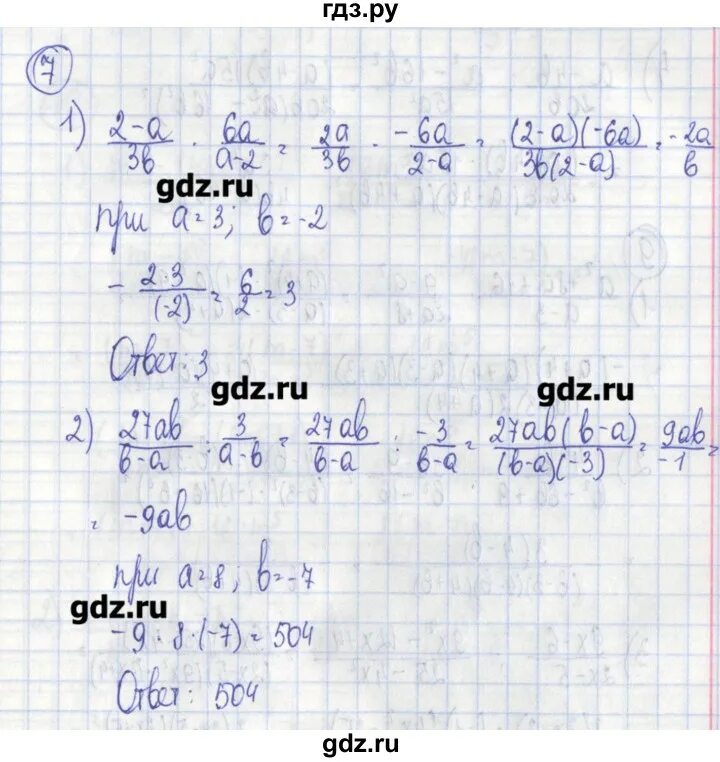 гдз.ру
7
1) (2-a)/3b · 6a/(a-2) = 2a/3b · -6a/(2-a) = (2-a)(-6a)/3b(2-a) = -2a/b
gdz.ru
при a=3; b=-2
- 2·3/(-2) = 6/2 = 3
Ответ: 3
gdz.ru
gdz.ru
2) 27ab/(b-a) : 3/(a-b) = 27ab/(b-a) : -3/(b-a) = 27ab(b-a)/(b-a)(-3) = 9ab/-1 =
= -9ab
при a=8; b=-7
gdz.ru
-9·8·(-7) = 504
Ответ: 504
gdz.ru